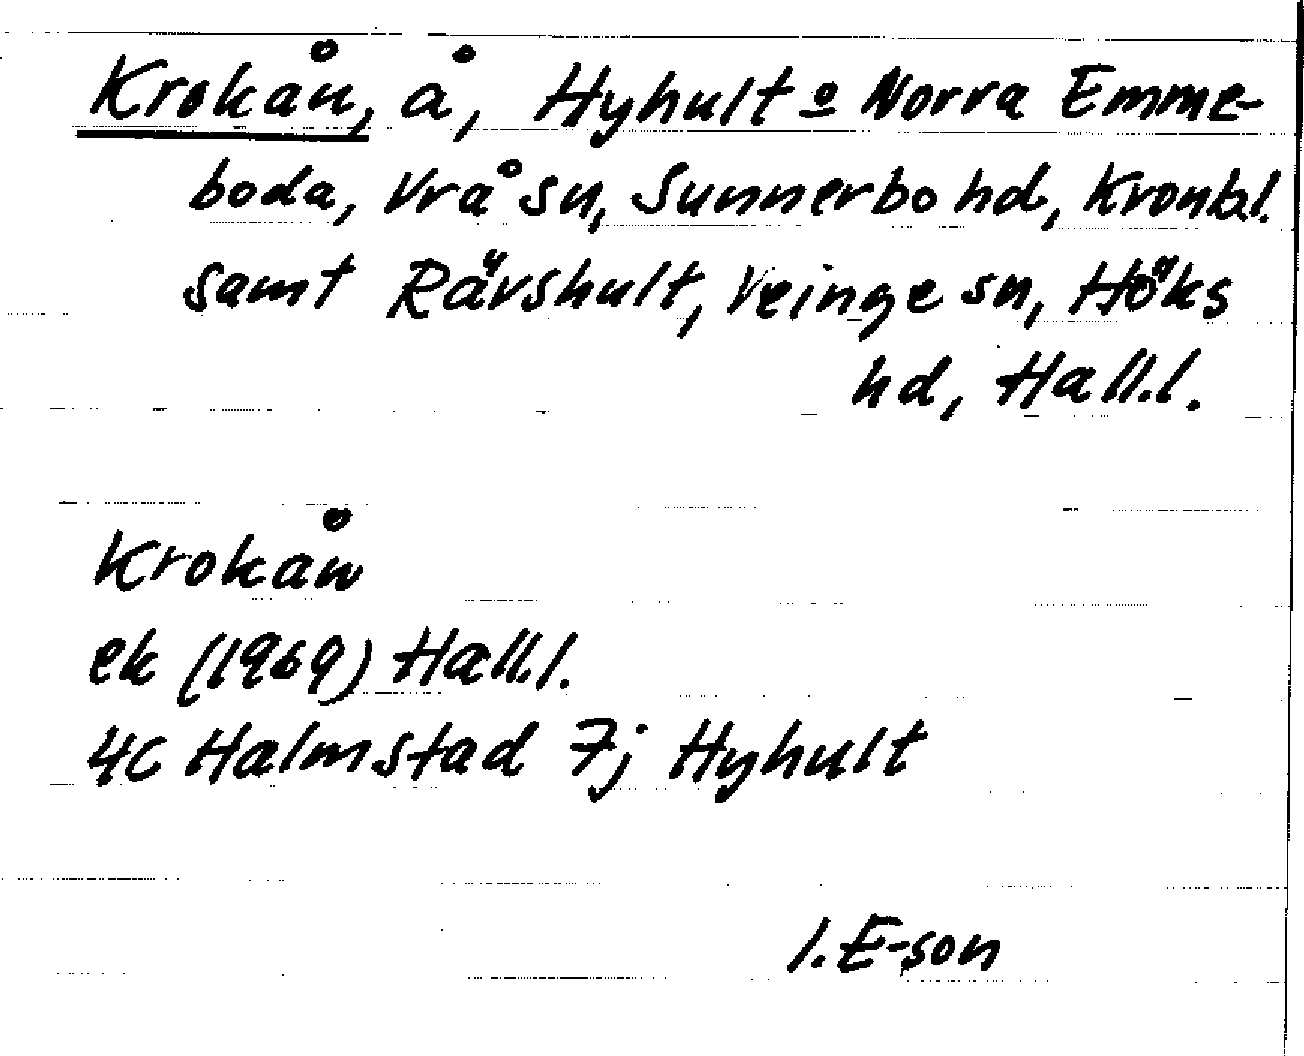 Krokån, å, Hyhult o Norra Emme-
boda, Vrå sn, Sunnerbo hd, Kronb.l.
samt Rävshult, Veinge sn, Höks
hd, Hall.l.
Krokån
ek (1969) Hall.l.
4C Halmstad 7j Hyhult
I. E-son